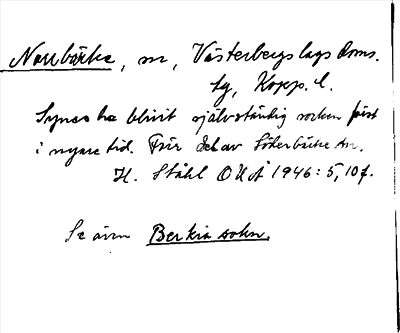 Norrbärke, sn, Västerbergslags doms.
sg, Kopp. l.
Synes ha blivit självständig socken först
i nyare tid. Förr del av Söderbärke sn.
H. Ståhl OUÅ 1946: 5, 10 f.
Se även Berkia sokn.